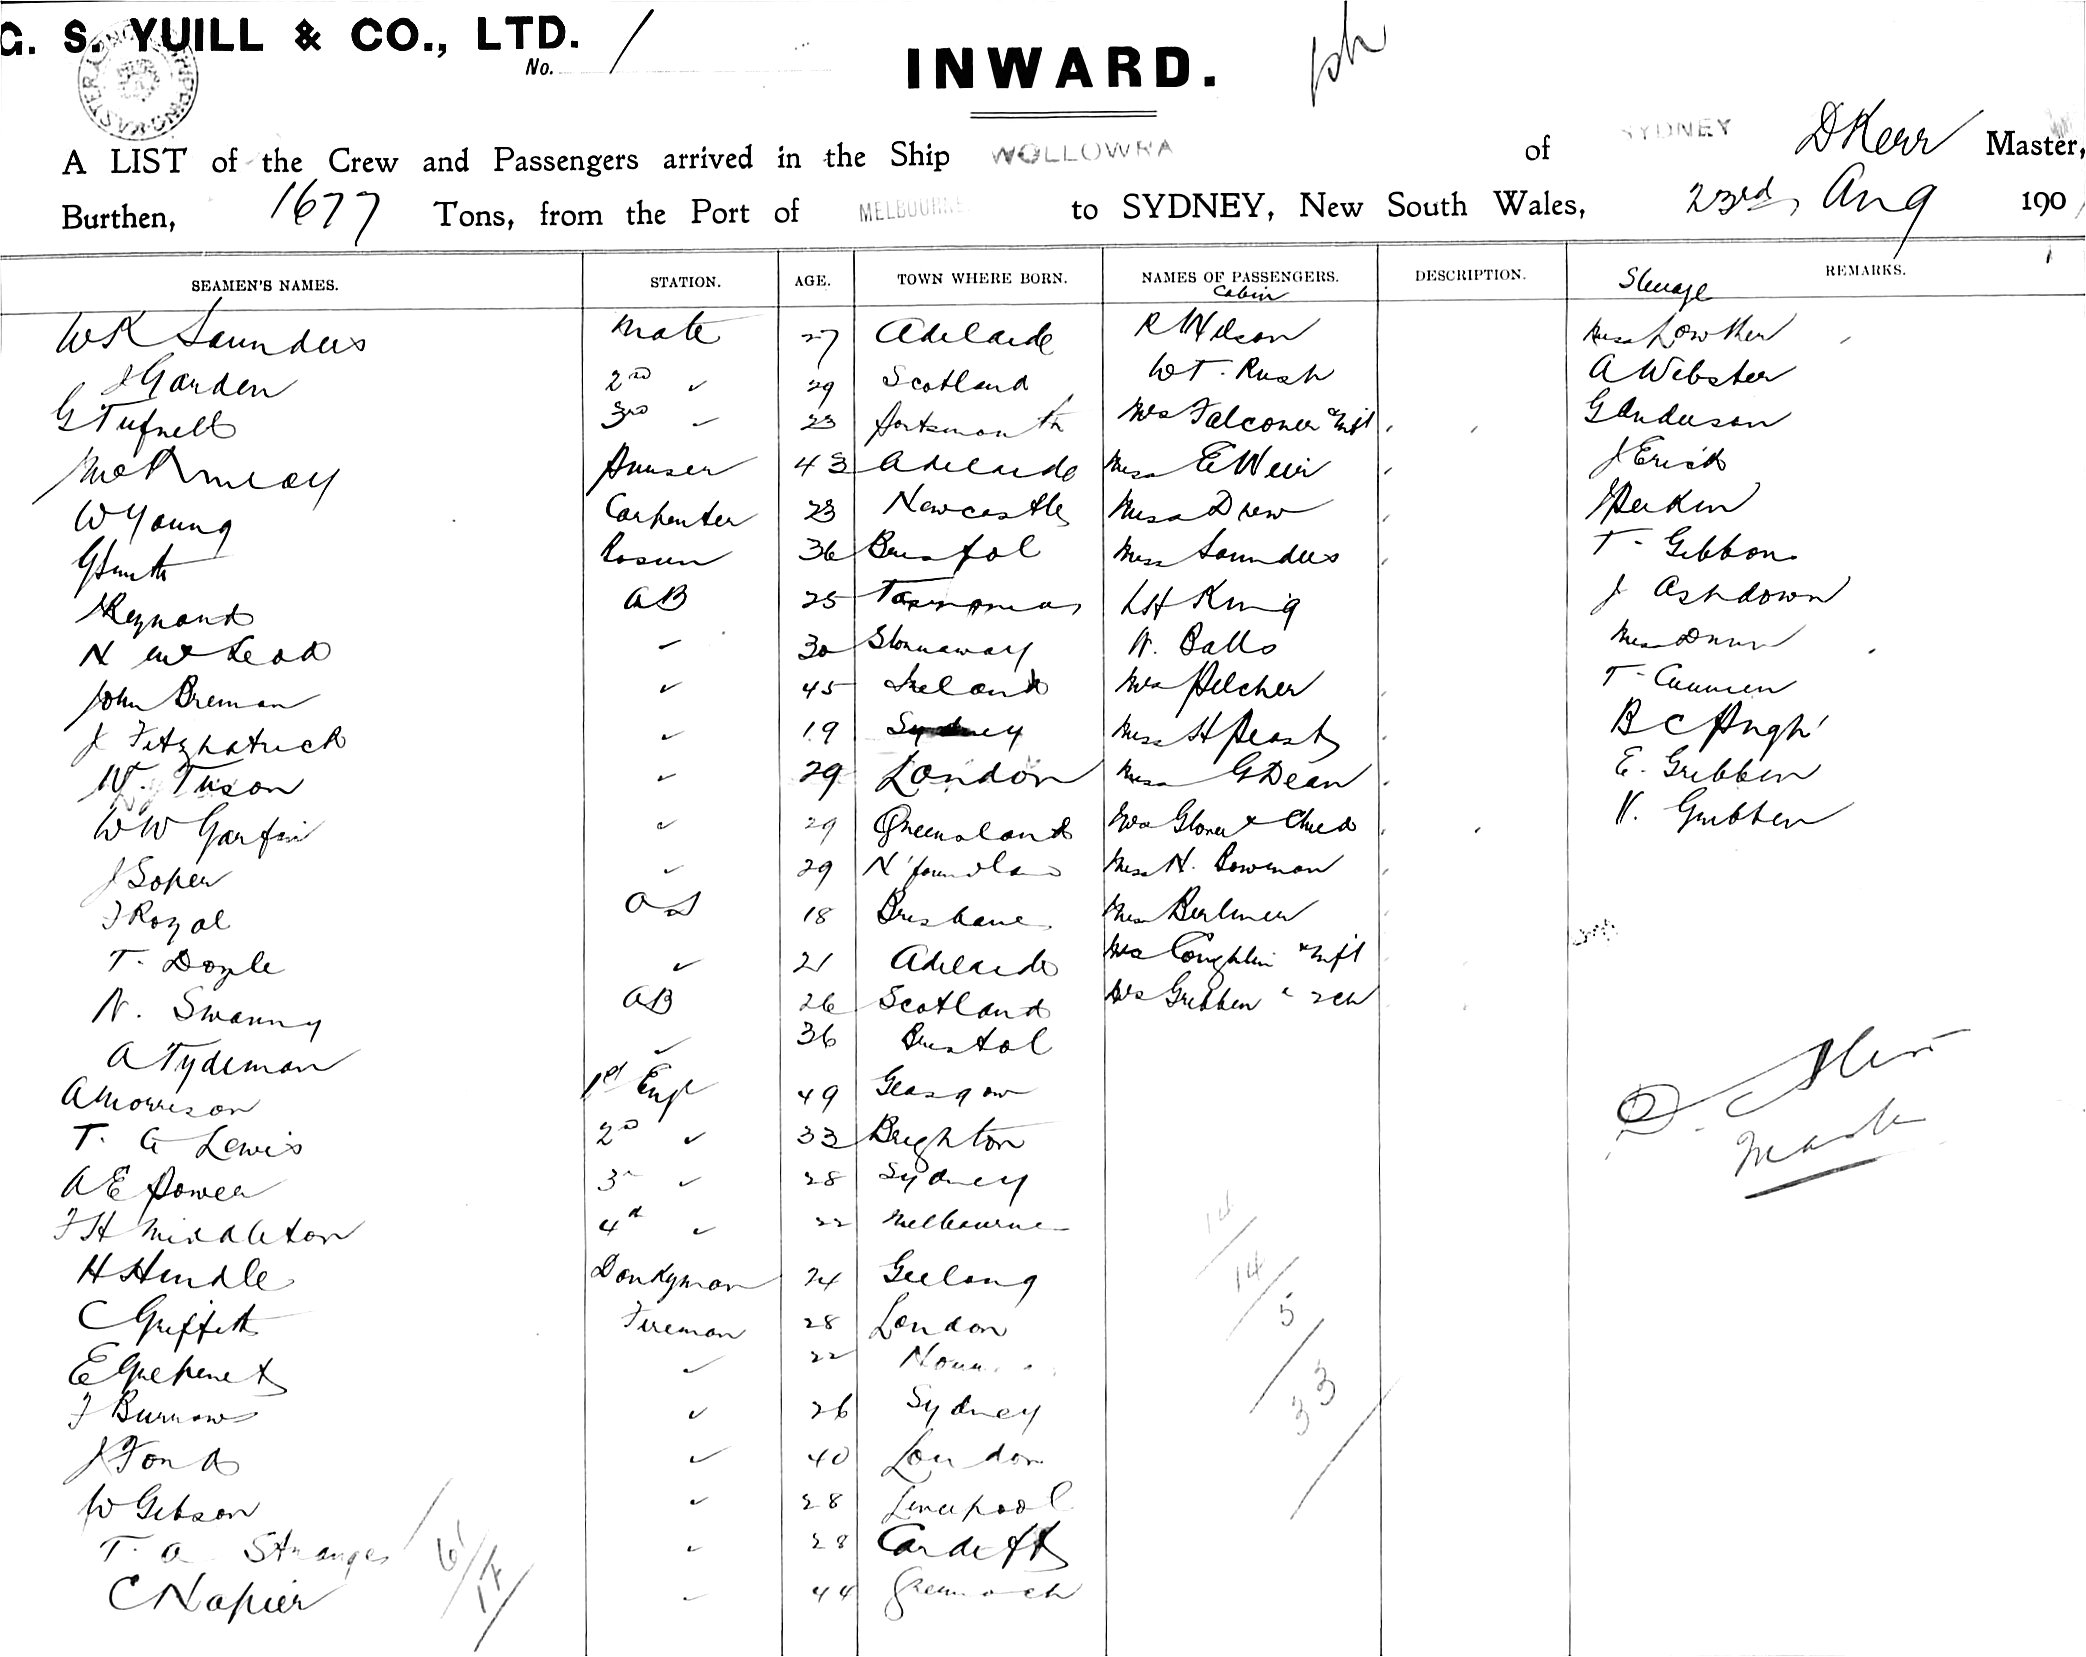 G. S. YUILL & CO., LTD.
No. 1
INWARD.
A LIST of the Crew and Passengers arrived in the Ship WOLLOWRA of SYDNEY D Kerr Master,
Burthen, 1677 Tons, from the Port of MELBOURNE to SYDNEY, New South Wales, 23rd, Aug 190
SEAMEN'S NAMES. STATION. AGE. TOWN WHERE BORN. NAMES OF PASSENGERS. DESCRIPTION. REMARKS.
Cabin Steerage
W R Saunders Mate 27 Adelaide R Wilson Miss Lowther
J Garden 2nd ✓ 29 Scotland W T. Rush A Webster
G Tufnell 3rd ✓ 23 Portsmouth Mrs Falconer & Inft G Anderson
Purser 43 Adelaide Miss E Weir J Erick
W Young Carpenter 23 Newcastle Miss Drew J Perkin
G Smith Bosun 36 Bristol Miss Saunders T. Gibbon
25 Tasmania L H King J Ashdown
AB
N McLeod ✓ 30 Stornaway W. Balls Miss Dunn
John Brennan ✓ 45 Ireland Mrs Pilcher T.
J Fitzpatrick ✓ 19 Sydney Miss H B C Pugh
W. Tuson ✓ 29 London Miss G Dean E. Gribben
W W Garfin ✓ 29 Queensland Mrs Glover & Child V. Gribben
J Soper ✓ 29 N'foundlan Miss N. Bowman
F Royal OS 18 Brisbane Miss Berliner
T. Doyle ✓ 21 Adelaide Mrs Coughlin & Inft
N. Swanny AB 26 Scotland Mrs Gribben " 2 ch
A Tydeman ✓ 36 Bristol
A Morrison 1st Engr 49 Glasgow
T. G Lewis 2nd ✓ 33 Brighton
A E Power 3rd ✓ 28 Sydney
F H Middleton 4th ✓ 22 Melbourne
H Hindle Donkyman 24 Geelong
C Griffith Fireman 28 London
E ✓ 22
F Burrows ✓ 26 Sydney
J Ford ✓ 40 London
W Gibson ✓ 28 Liverpool
T. A Stranger ✓ 28 Cardiff
C Napier ✓ 44 Greenock
D. Kerr
Master
14
14
5
33